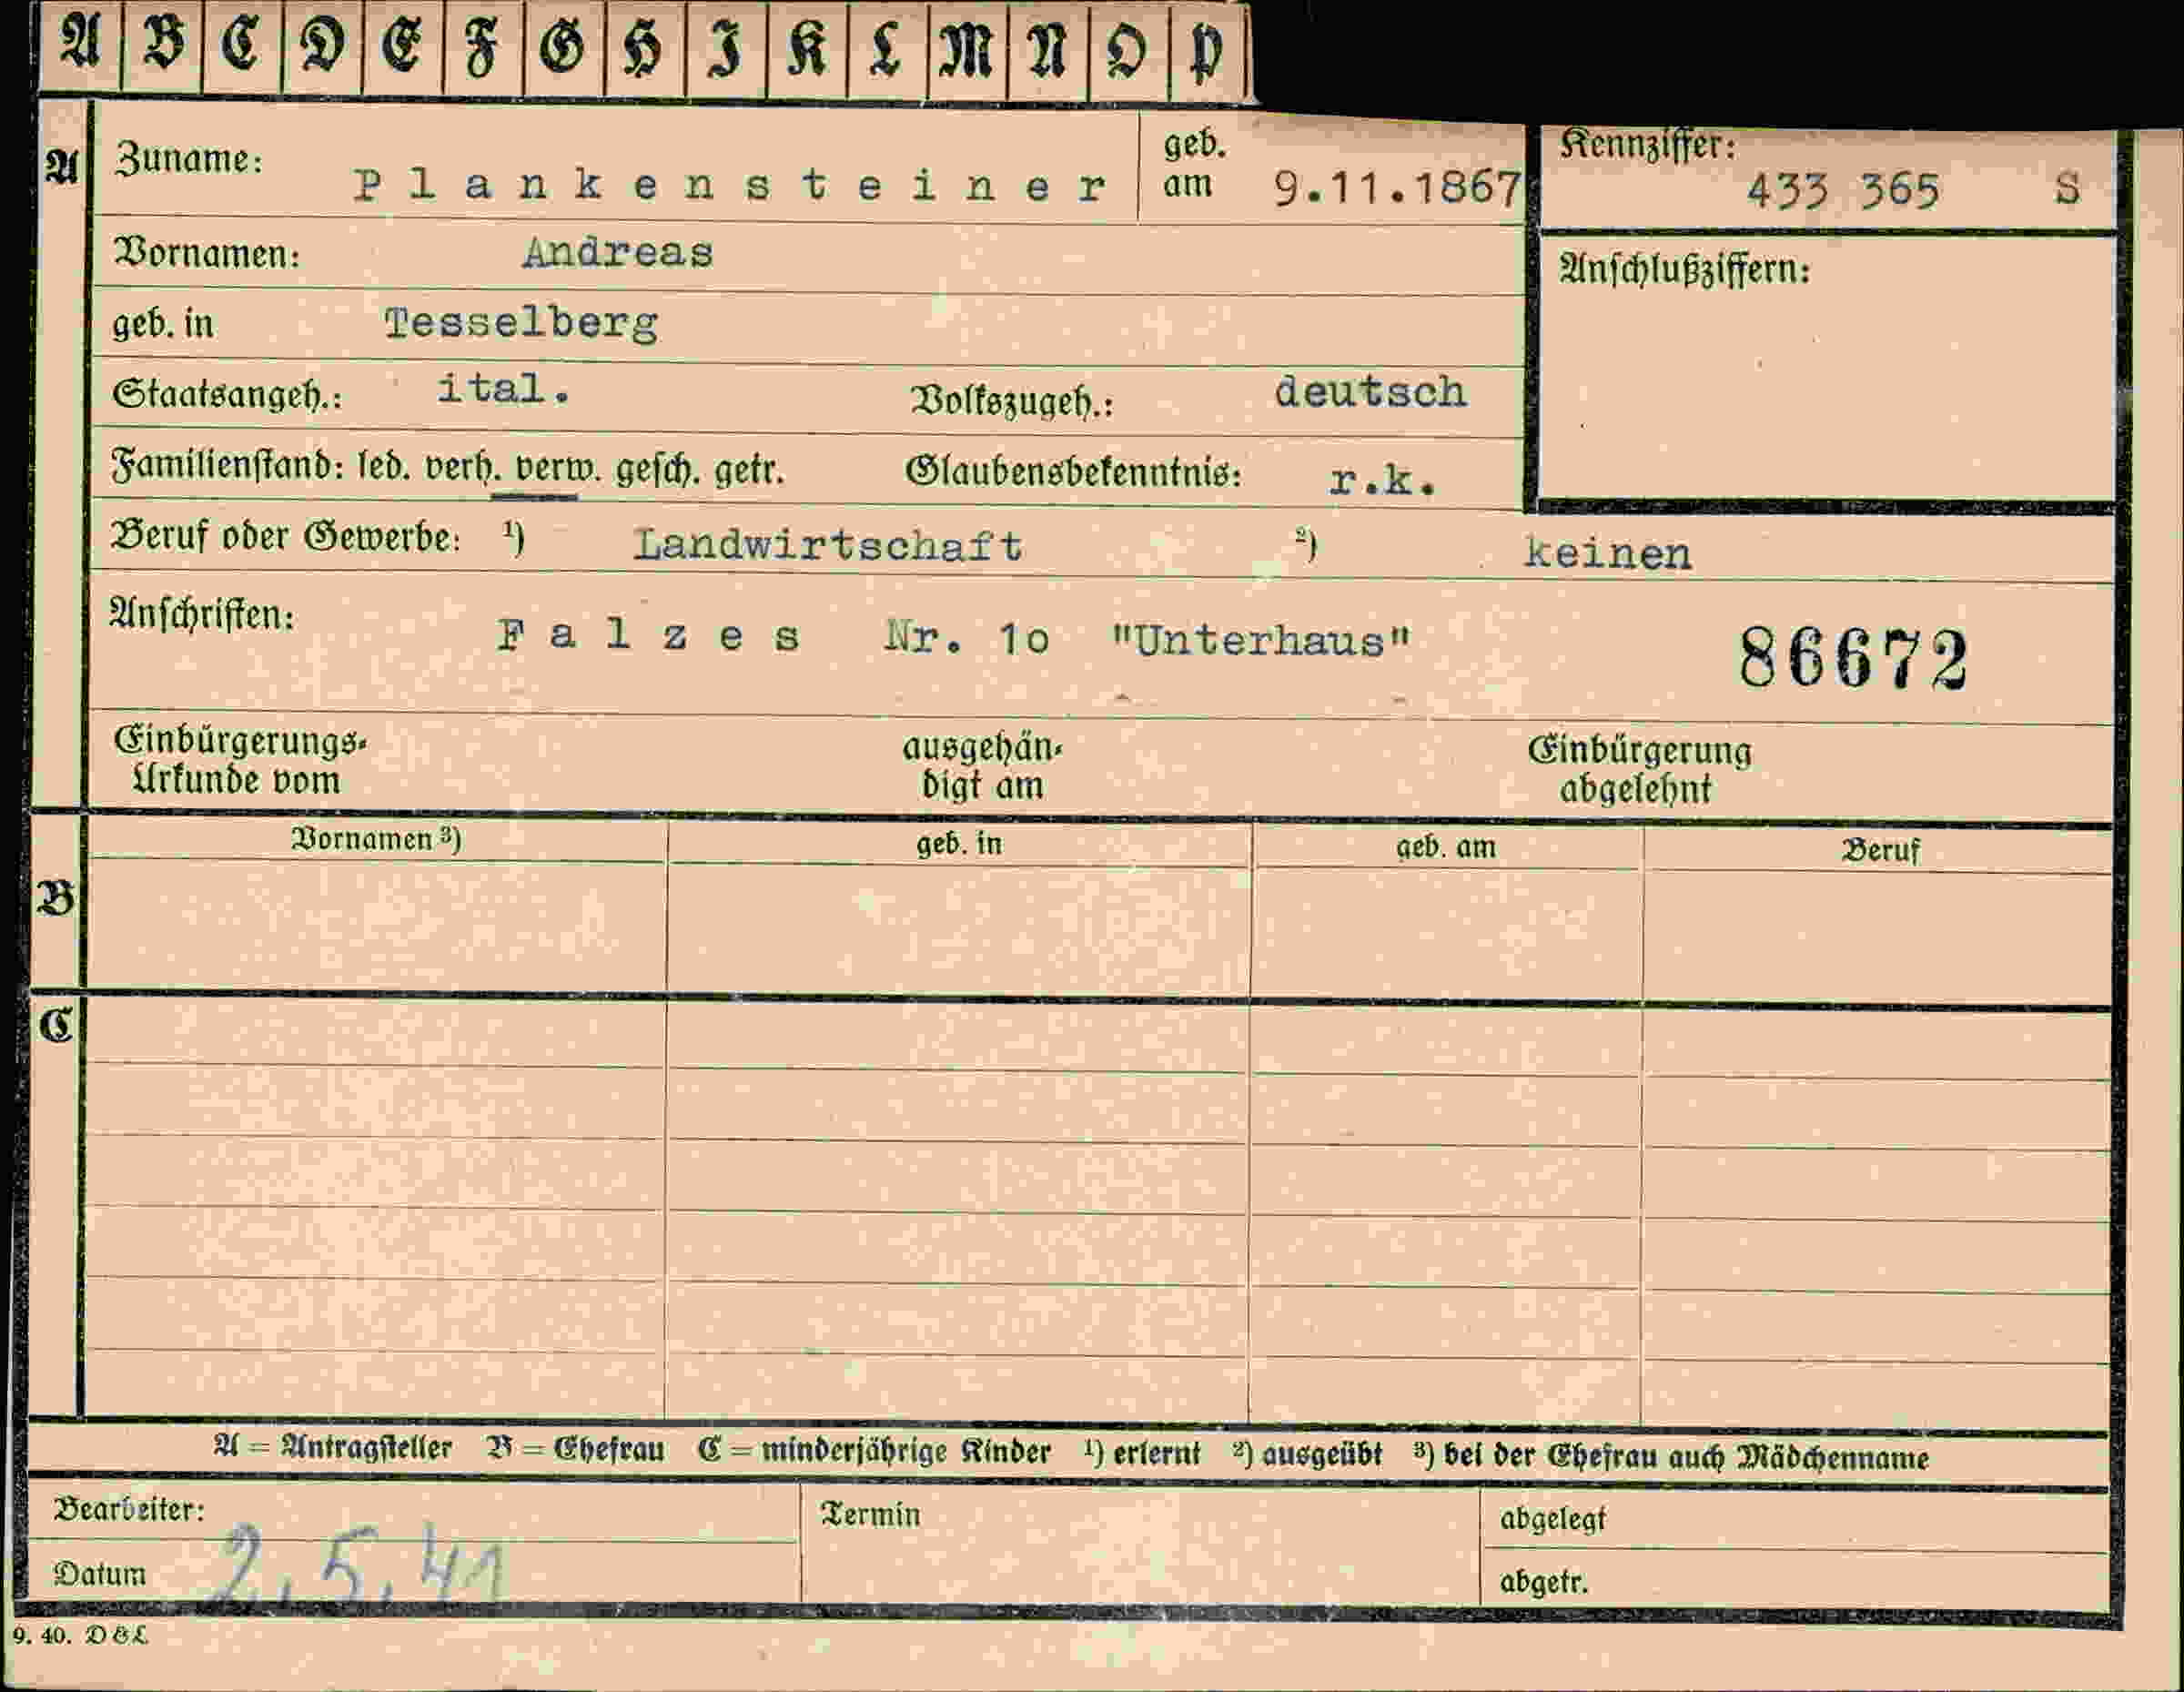 A B C D E F G H I K L M N O P
A Zuname: Plankensteiner geb. am 9.11.1867 Kennziffer: 433 365 S
Vornamen: Andreas Anschlußziffern:
geb. in Tesselberg
Staatsangeh.: ital. Volkszugeh.: deutsch
Familienstand: led. verh. verw. gesch. getr. Glaubensbekenntnis: r.k.
Beruf oder Gewerbe: ¹) Landwirtschaft ²) keinen
Anschriften: Falzes Nr. 1o "Unterhaus" 86672
Einbürgerungs- ausgehän- Einbürgerung
Urkunde vom digt am abgelehnt
Vornamen ³) geb. in geb. am Beruf
B
C
A = Antragsteller B = Ehefrau C = minderjährige Kinder ¹) erlernt ²) ausgeübt ³) bei der Ehefrau auch Mädchenname
Bearbeiter: Termin abgelegt
Datum 2.5.41 abgetr.
9. 40. D & L